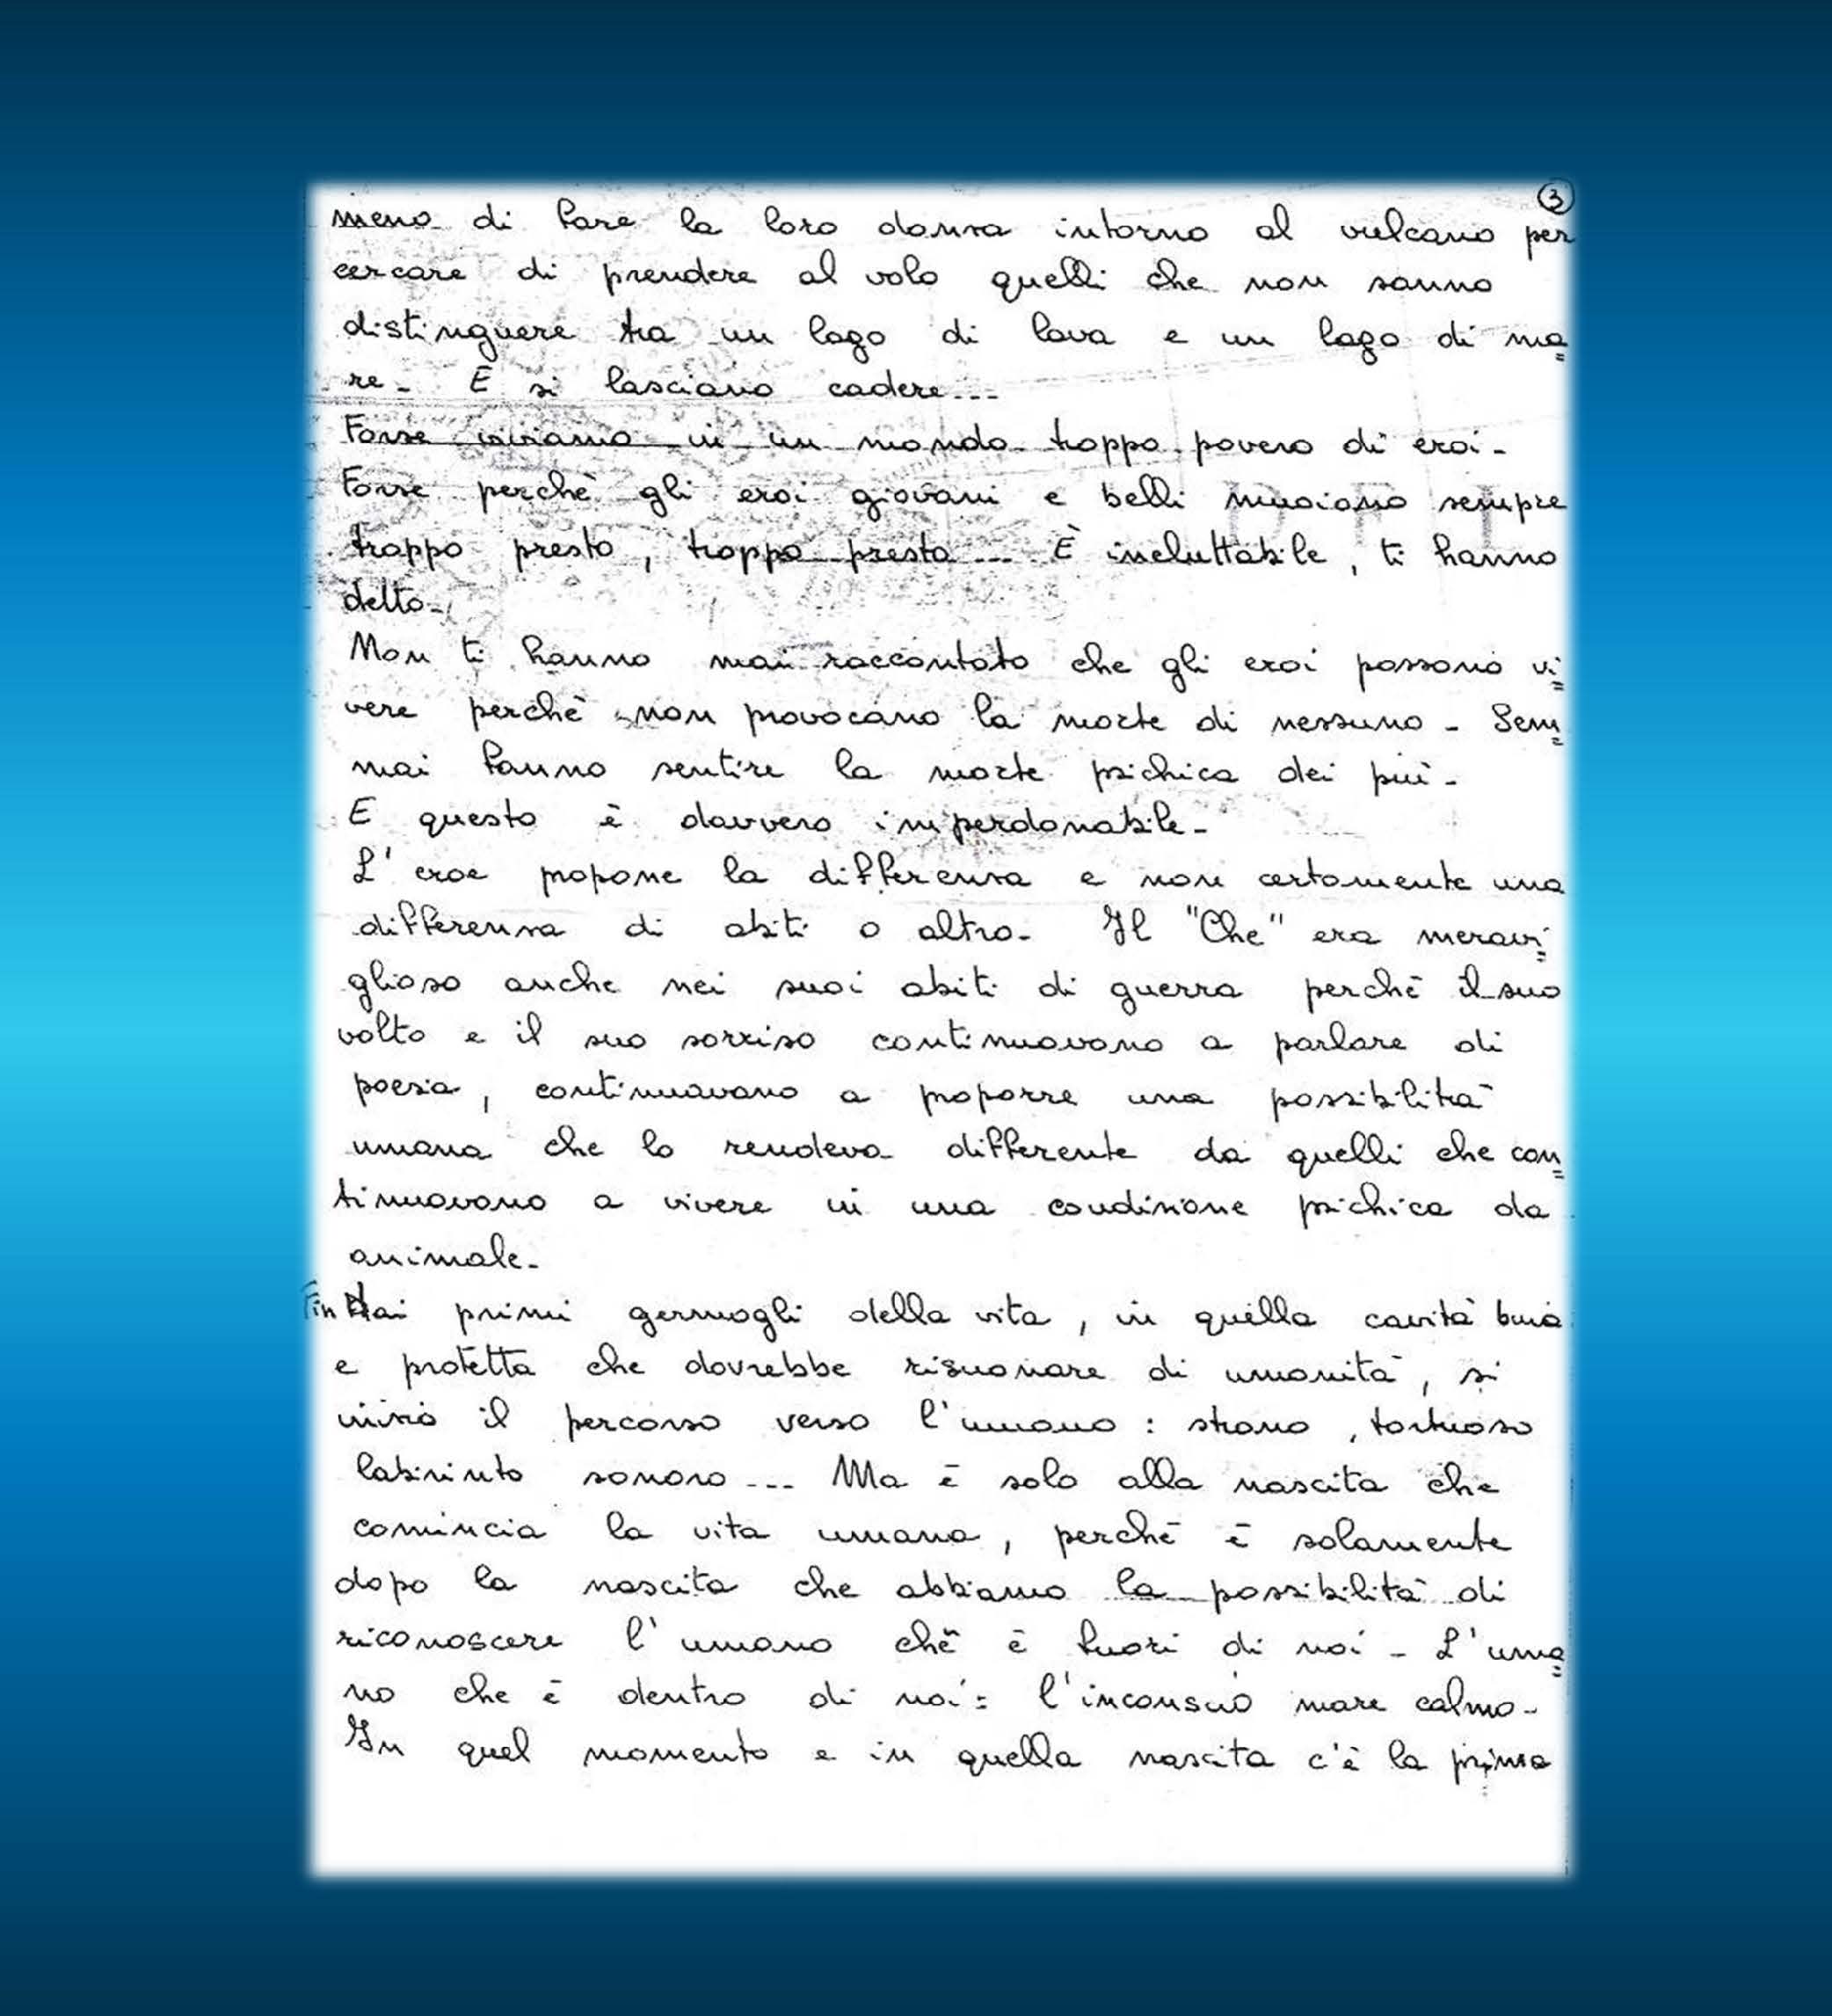 3
meno di fare la loro danza intorno al vulcano per
cercare di prendere al volo quelli che non sanno
distinguere tra un lago di lava e un lago di ma=
re - E si lasciano cadere...
Forse viviamo in un mondo troppo povero di eroi -
Forse perchè gli eroi giovani e belli muoiono sempre
troppo presto, troppo presto ... È ineluttabile, ti hanno
detto -
Non ti hanno mai raccontato che gli eroi possono vi=
vere perchè non provocano la morte di nessuno - Sem=
mai fanno sentire la morte psichica dei più -
E questo è davvero imperdonabile -
L'eroe propone la differenza e non certamente una
differenza di abiti o altro - Il "Che" era meravi=
glioso anche nei suoi abiti di guerra perchè il suo
volto e il suo sorriso continuavano a parlare di
poesia, continuavano a proporre una possibilità
umana che lo rendeva differente da quelli che con=
tinuavano a vivere in una condizione psichica da
animale -
Fin dai primi germogli della vita, in quella cavità buia
e protetta che dovrebbe risuonare di umanità, si
inizia il percorso verso l'umano : strano, tortuoso
labirinto sonoro ... Ma è solo alla nascita che
comincia la vita umana, perchè è solamente
dopo la nascita che abbiamo la possibilità di
riconoscere l'umano che è fuori di noi - L'uma=
no che è dentro di noi : l'inconscio mare calmo -
In quel momento e in quella nascita c'è la prima